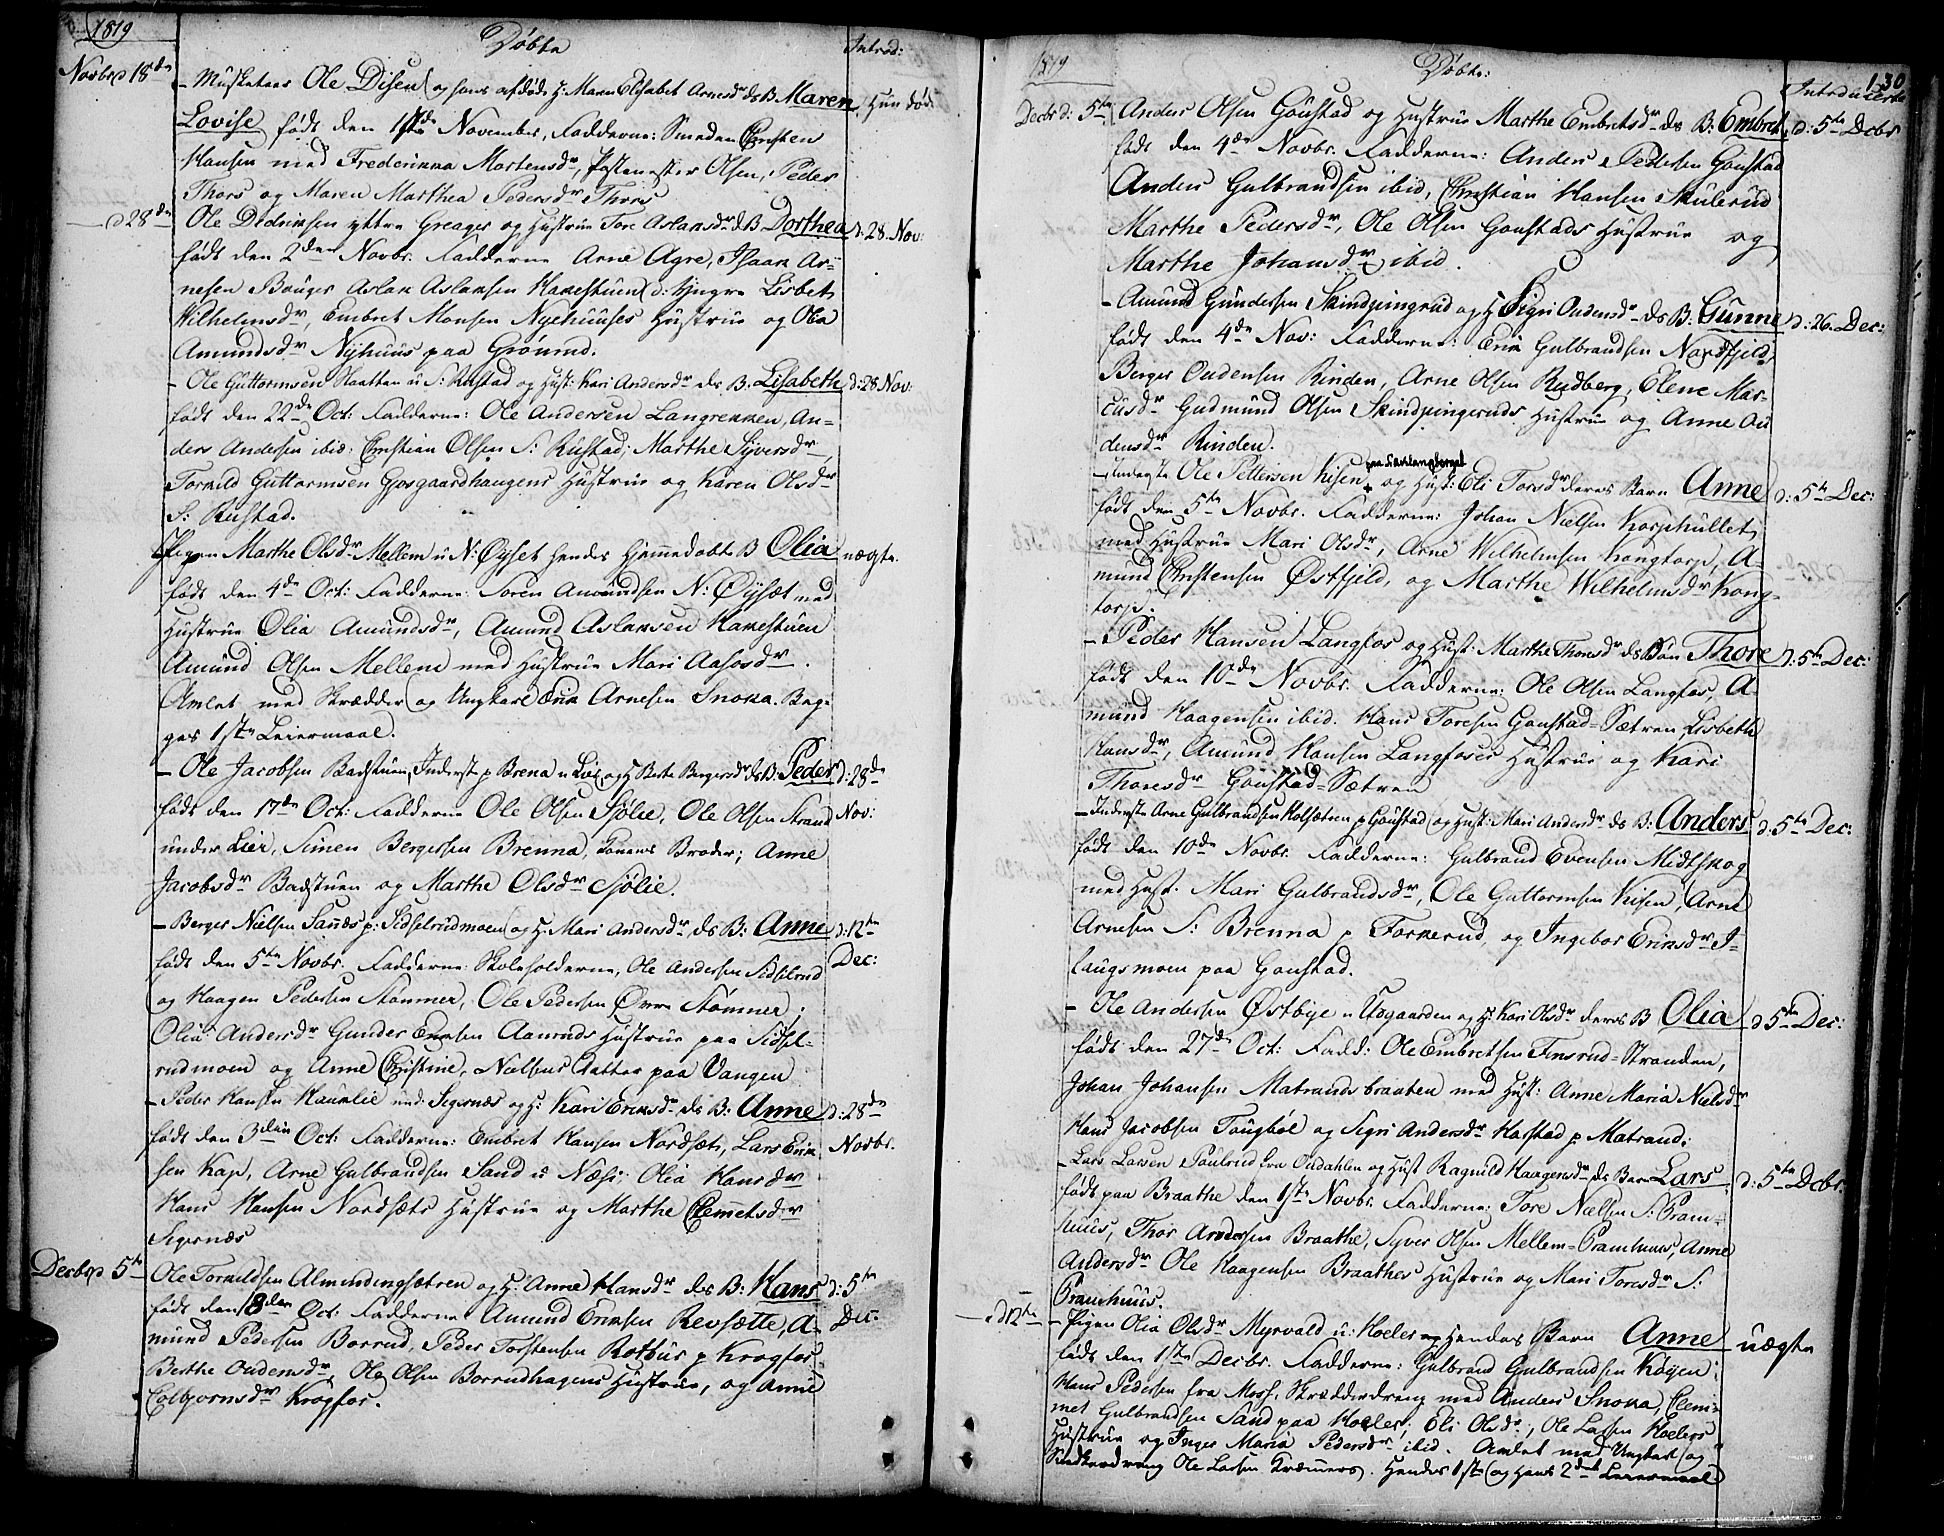 1819
Døbte
Introd:
Novbr d 18de
- Musketeer Ole Disen og hans afdøde H: Maren Elisabet Arnesdr ds B Maren
Hun død
Lovise født den 11te November, Fadderne: Smeden Christen
Hansen med Frederikka Mortensdr, Postmester Olsen, Peder
Thors og Maren Marthea Pedersdr Thors
d 28de
Ole Dedriksen yttre Greager og Hustrue Tore Aslaksdr ds B Dorthea
d: 28. Nov:
født den 2den Novbr. Fadderne Arne Agre, Isaak Ar-
nesen Bauger Aslak Aslaksen Hakestuen d: yngre Lisbet
Wilhelmsdr, Embret Monsen Nyehuuses Hustrue og Olia
Amundsdr Nyhuus paa Grönrud.
- Ole Guttormsen Haatten u S: Rustad og Hust: Kari Andersdr ds B: Lisabeth
d: 28 Nov:
født den 22de Oct: Fadderne: Ole Andersen Langrekken, An-
ders Andersen ibid: Christian Olsen S: Rustad, Marthe Syversdr,
Torkild Guttormsen Gjosgaardhaugens Hustrue og Karen Olsdr
S: Rustad.
Pigen Marthe Olsdr Mellem u N: Øyset hendes hjemmedøbte B Olia
uægte.
født den 4de Oct: Fadderne: Soren Amundsen N: Øysæt med
Hustrue Olia Amundsdr, Amund Aslaksen Hakestuen
Amund Olsen Mellem med Hustrue Mari Aasesdr.
Avlet med Skrædder og Ungkarl Erik Arnesen Snoka. Beg-
ges 1ste Leiermaal.
- Ole Jacobsen Badstuen, Inderst p Brena u Lier og H Berte Bergersdr ds B: Peder
d: 28de
født den 17de Oct: Fadderne Ole Olsen Sjølie, Ole Olsen Strand
Nov:
under Lier, Simen Bergersen Brenna, Konens Broder; Anne
Jacobsdr Badstuen og Marthe Olsdr Sjølie.
- Berger Nielsen Sanæs p: Sidselrudmoen og H: Mari Andersdr, ds B: Anne
d: 12te
født den 5te Novbr. Fadderne: Skoleholderne, Ole Andersen Sidselrud
Dec:
og Haagen Pedersen Stømner, Ole Pedersen Øvre Stømner;
Olia Andersdr Gunder Eriksen Aanruds Hustrue paa Sidsel-
rudmoen og Anne Christine, Nielsens Datter paa Vangen
- Peder Hansen Haurlie und: Segernæs og H: Kari Eriksdr ds B: Anne
d: 28de
født den 3die Oct: Fadderne: Embret Hansen Nordsæt, Lars Erik-
Novbr.
sen Kap, Arne Gulbrandsen Sand u Næs; Olia Hansdr
Hans Hansen Nordsæts Hustrue og Marthe Clemetsdr
Segernæs
Decbr d 5te
Ole Torkildsen Almindingsætren og H: Anne Hansdr ds B: Hans
d: 5te
født den 18den Oct: Fadderne Amund Eriksen Revsætte, A-
Dec:
mund Pedersen Borrud, Peder Torstensen Rothus p Krogfos
Berthe Oudensdr, Ole Olsen Borrudhagens Hustrue, og Anne
Colbjornsdr Krogfos.
1819
Døbte:
130
Introducerte
Decbr d: 5te
Anders Olsen Goustad og Hustrue Marthe Embretsdr ds B: Embret
d: 5te Decbr
født den 4de Novbr. Fadderne: Anders Pedersen Goustad
Anders Gulbrandsen ibid, Christian Hansen Skulerud
Marthe Pedersdr, Ole Olsen Goustads Hustrue og
Marthe Johansdr ibid.
- Amund Gundersen Skindpungrud og H Sigri Oudensdr ds B: Gunne
d: 26. Dec:
født den 4de Nov: Fadderne: Erik Gulbrandsen Nordfjeld,
Berger Oudensen Rinden, Arne Olsen Rudberg, Elene Mar-
cusdr Gudmund Olsen Skindpungruds Hustrue og Anne Ou
densdr Rinden.
paa Sæterlangberget
- Inderste Ole Pettersen Visen og Hust: Eli Torsdr deres Barn Anne
d: 5te Dec:
født den 5te Novbr. Fadderne: Johan Nielsen Korphullet
med Hustrue Mari Olsdr, Arne Wilhelmsen Kongtorp, A-
mund Christensen Østfjeld, og Marthe Wilhelmsdr Kong-
torp.
- Peder Hansen Langfos og Hust: Marthe Thoresdr ds Søn Thore
d: 5te Dec:
født den 10de Novbr. Fadderne: Ole Olsen Langfos, A-
mund Haagensen ibid. Hans Toresen Goustad-Sætren, Lisbeth
Hansdr, Amund Hansen Langfoses Hustrue og Kari
Thoresdr Goustad-Sætren
- Inderste Arne Gulbrandsen Holsætren p Goustad og Hust: Mari Andersdr ds B: Anders
d: 5te Dec:
født den 10de Novbr. Fadderne: Gulbrand Evensen Midtskog
med Hust. Mari Gulbrandsdr, Ole Guttormsen Visen, Arne
Arnesen S: Brenna p Forkerud, og Ingebor Eriksdr I-
laugsmoen paa Goustad.
- Ole Andersen Østbye u Udgaarden og H: Kari Olsdr deres B Olia
d 5te Dec:
født den 27de Oct: Fadd: Ole Embretsen Finsrud-Stranden,
Johan Johansen Matrandsbraaten med Hust: Anne Maria Nielsdr
Hans Jacobsen Tougbøl og Sigri Andersdr Harstad p Matrand.
- Lars Larsen Poulrud fra Oudahlen og Hust Ragnild Haagensdr ds Barn Lars
d: 5te Decbr.
født paa Braathe den 1ste Novbr. Fadderne: Tore Nielsen S: Pram-
huus, Thor Arnesen Braathe, Syver Olsen Mellem-Pramhuus, Anne
Andersdr Ole Haagensen Braathes Hustrue og Mari Toresdr S:
Pramhuus.
d 12te
- Pigen Olia Olsdr Myrvald u: Hoeler hendes Barn Anne
uægte
født den 1ste Decbr. Fadderne: Gulbrand Gulbrandsen Køyen;
Hans Pedersen fra Moss, Skrædderdreng med Anders Snoka, Clem-
met Gulbrandsen Sand paa Hoeler; Eli Olsdr, Ole Larsen Hoelers
Hustrue og Inger Maria Pedersdr ibid. Avlet med Ungkarl og
Snedkerdreng Ole Larsen Kræmmers. Hendes 1ste og hans 2det Leiermaal